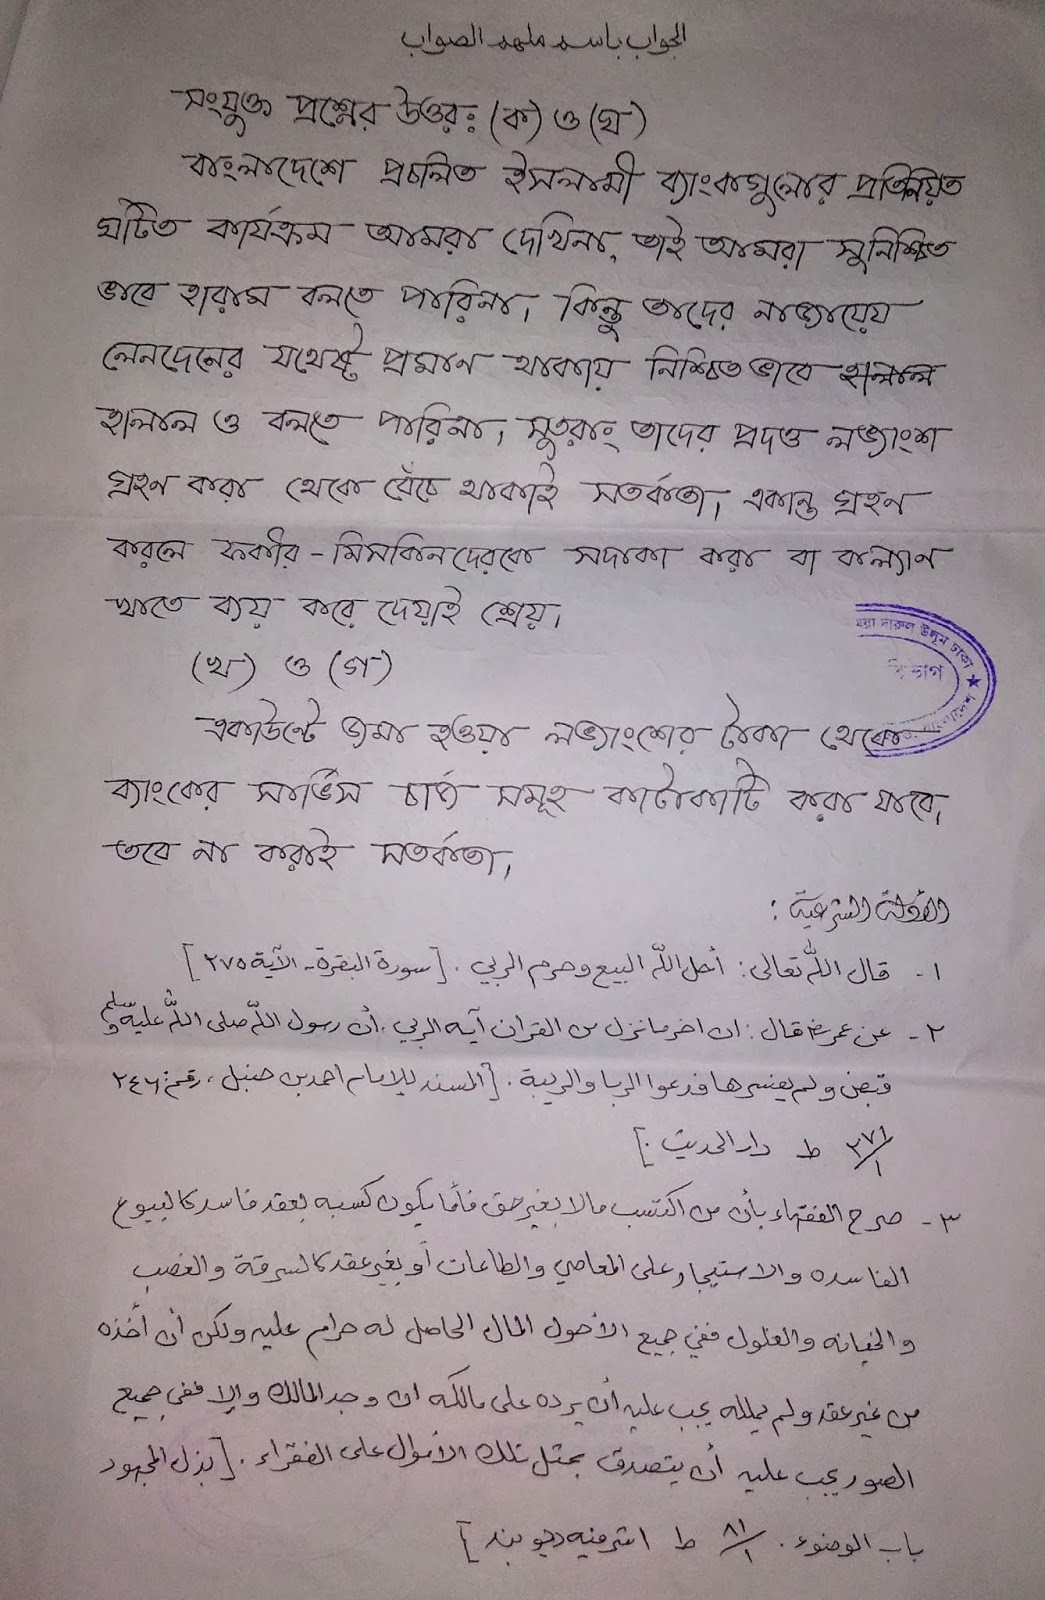 الجواب باسم ملهم الصواب
সংযুক্ত প্রশ্নের উত্তর: (ক) ও (ঘ)
বাংলাদেশে প্রচলিত ইসলামী ব্যাংকগুলোর প্রতিনিয়ত
ঘটিত কার্যক্রম আমরা দেখিনা, তাই আমরা সুনিশ্চিত
ভাবে হারাম বলতে পারিনা, কিন্তু তাদের নাজায়েয
লেনদেনের যথেষ্ট প্রমান থাকায় নিশ্চিত ভাবে
হালাল ও বলতে পারিনা, সুতরাং তাদের প্রদত্ত লভ্যাংশ
গ্রহন করা থেকে বেঁচে থাকাই সতর্কতা, একান্ত গ্রহন
করলে ফকীর-মিসকিনদেরকে সদাকা করা বা কল্যান
খাতে ব্যয় করে দেয়াই শ্রেয়,
(খ) ও (গ)
একাউন্টে জমা হওয়া লভ্যাংশের টাকা থেকে
ব্যাংকের সার্ভিস চার্জ সমূহ কাটাকাটি করা যাবে,
তবে না করাই সতর্কতা,
য়া দারুল উলূম ঢাকা ★
বিভাগ
الأدلة الشرعية :
١- قال الله تعالى: أحل الله البيع وحرم الربى . [سورة البقرة - الآية ٢٧٥]
٢- عن عمر رض قال: ان اخر ما نزل من القران آية الربى . أن رسول الله صلى الله عليه وسلم
قبض ولم يفسرها فدعوا الربا والريبة . [المسند للإمام احمد بن حنبل ، رقم: ٢٤٦
٢٧١/١ ط دار الحديث .]
٣- صرح الفقهاء بأن من اكتسب مالا بغير حق فأما يكون كسبه بعقد فاسد كالبيوع
الفاسده والاستيجار على المعاصي والطاعات أو بغير عقد كالسرقة والغصب
والخيانه والغلول ففي جميع الأحول المال الحاصل له حرام عليه ولكن أن أخذه
من غير عقد ولم يملكه يجب عليه أن يرده على مالكه ان وجد المالك والا ففي جميع
الصور يجب عليه أن يتصدق بمثل تلك الأموال على الفقراء . [بذل المجهود
باب الوضوء . ٨١/١ ط اشرفيه ديوبند]